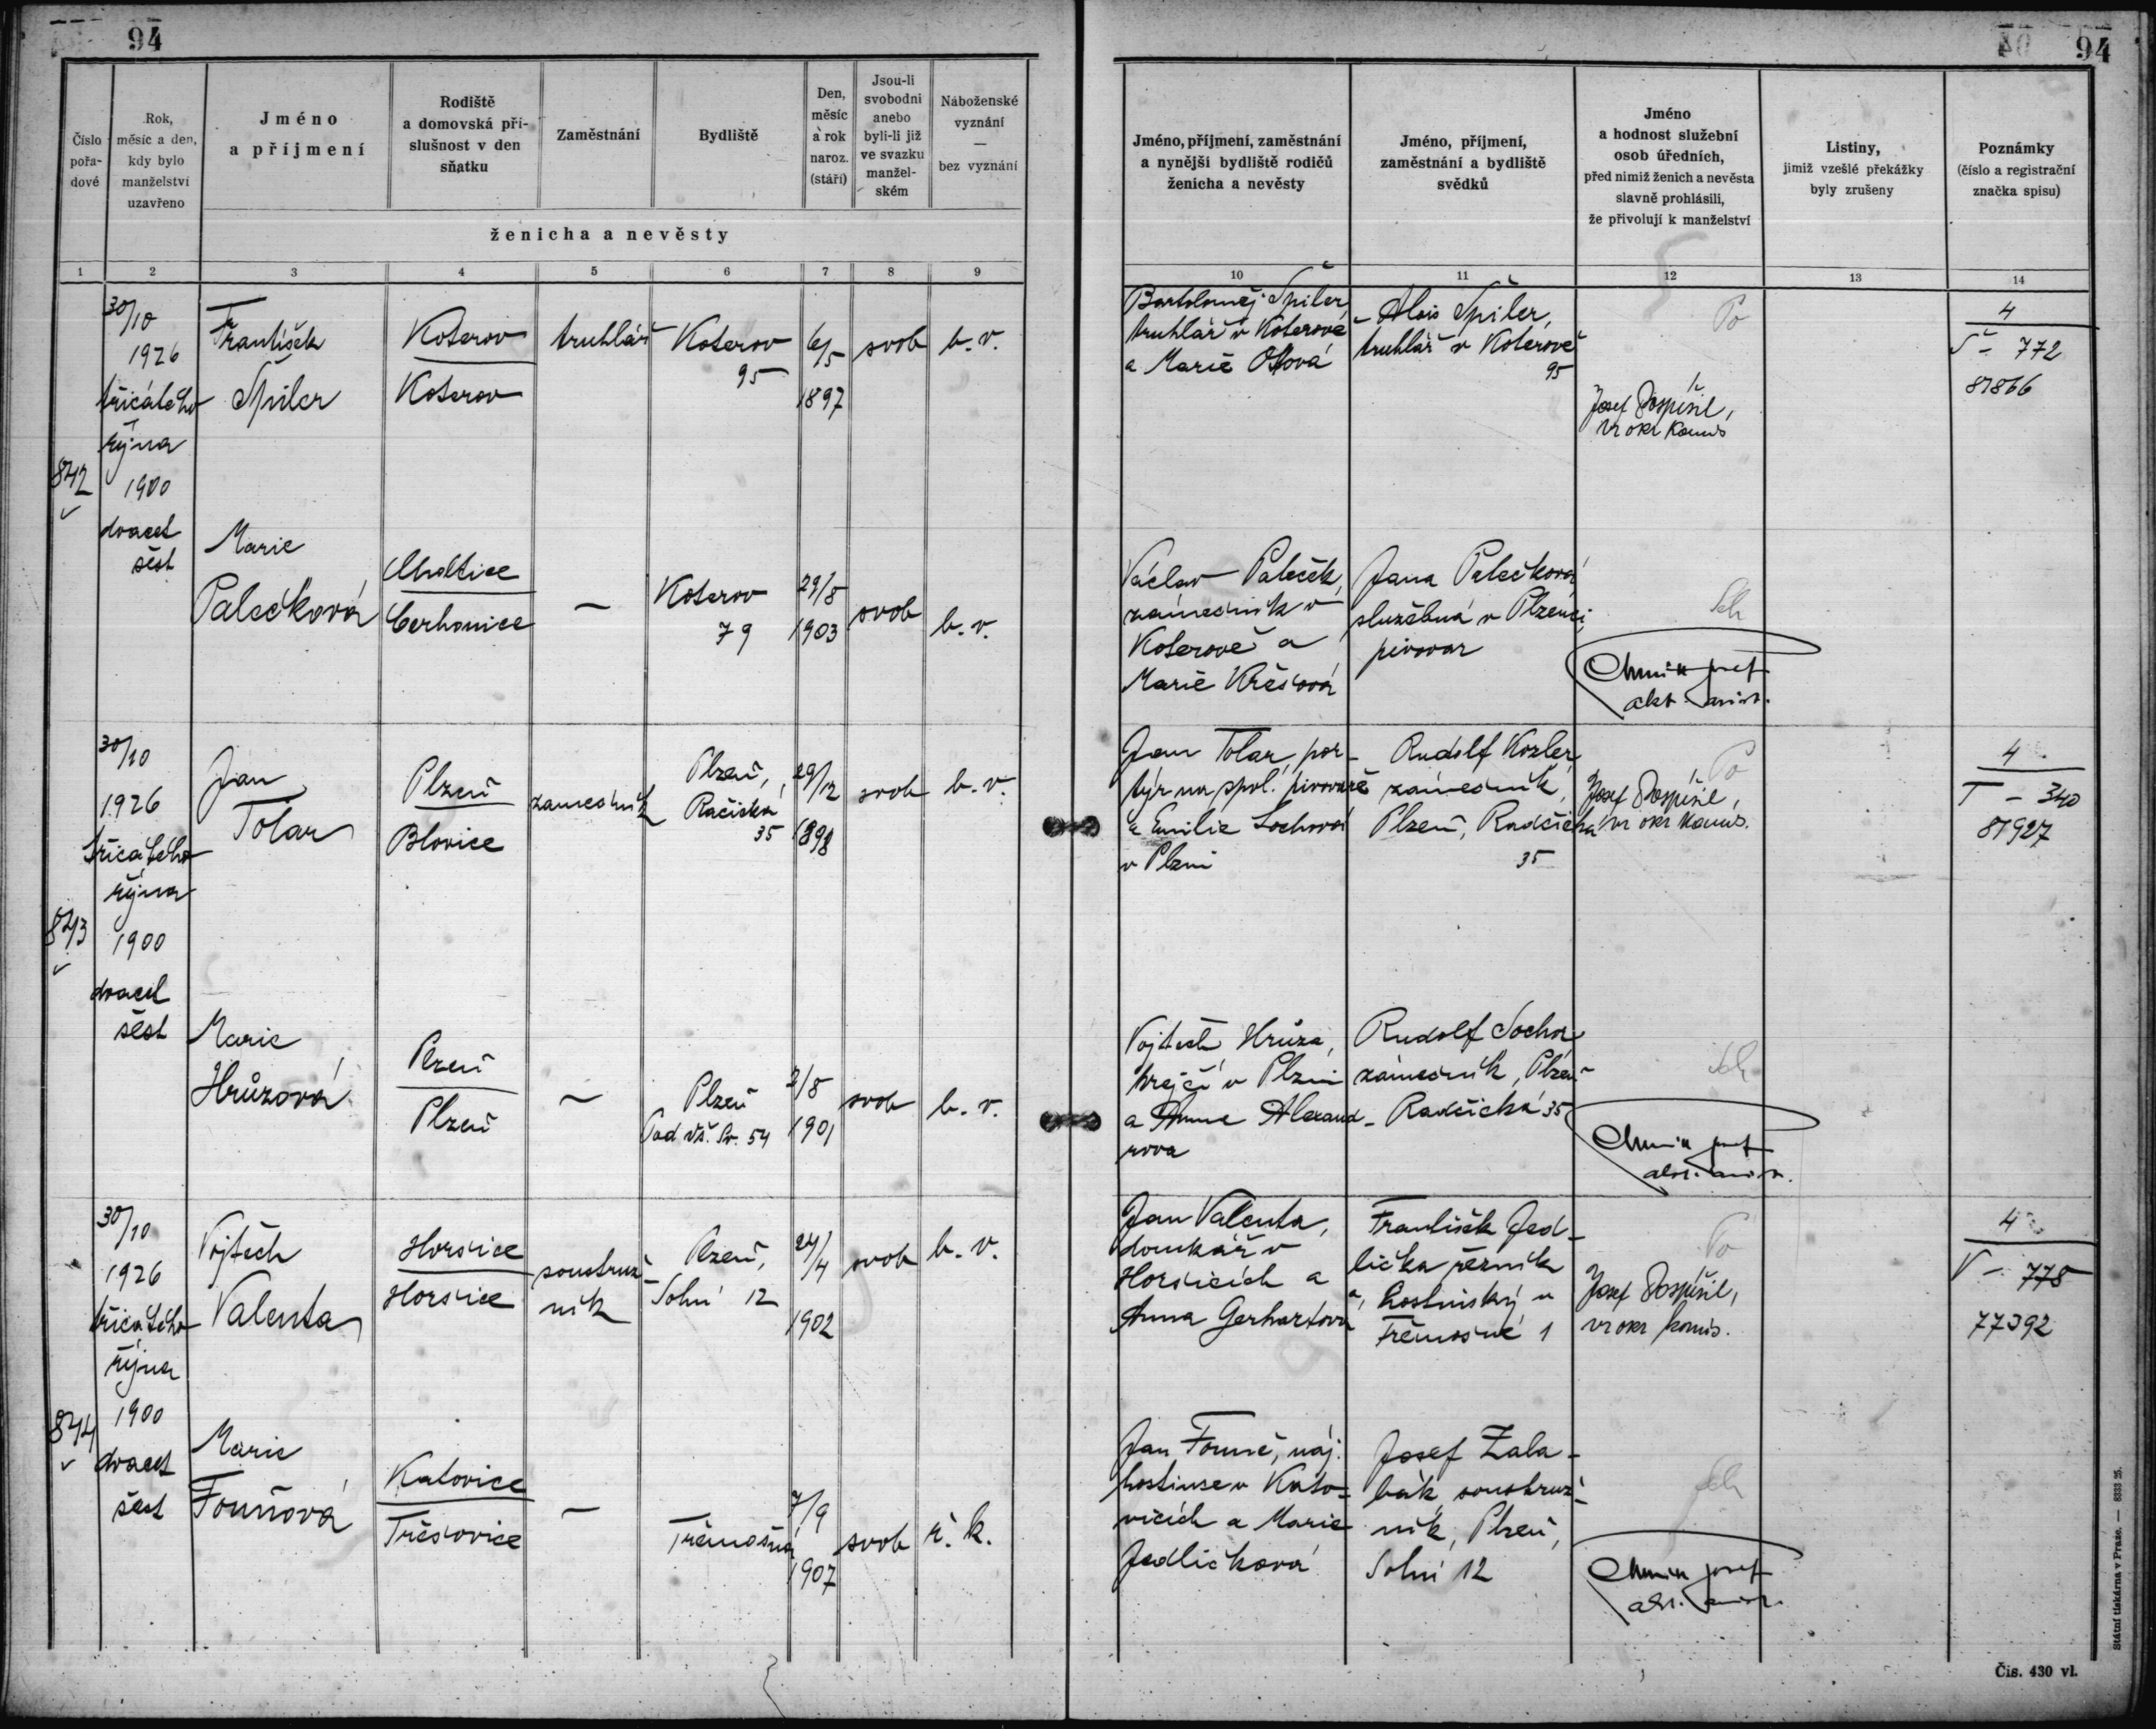 94
94
Číslo
pořa-
dové
Rok,
měsíc a den,
kdy bylo
manželství
uzavřeno
Jméno
a příjmení
Rodiště
a domovská pří-
slušnost v den
sňatku
Zaměstnání
Bydliště
Den,
měsíc
a rok
naroz.
(stáří)
Jsou-li
svobodni
anebo
byli-li již
ve svazku
manžel-
ském
Náboženské
vyznání
—
bez vyznání
ženicha a nevěsty
1 2 3 4 5 6 7 8 9
Jméno, příjmení, zaměstnání
a nynější bydliště rodičů
ženicha a nevěsty
Jméno, příjmení,
zaměstnání a bydliště
svědků
Jméno
a hodnost služební
osob úředních,
před nimiž ženich a nevěsta
slavně prohlásili,
že přivolují k manželství
Listiny,
jimiž vzešlé překážky
byly zrušeny
Poznámky
(číslo a registrační
značka spisu)
10 11 12 13 14
842
30/10
1926
třicátého
října
1900
dvacet
šest
František
Špiler
Koterov
Koterov
truhlář
Koterov
95
6/5
1897
svob
b. v.
Bartoloměj Špiler
truhlář v Koterově
a Marie
Alois Špiler,
truhlář v Koterově
95
Po
Josef Pospíšil,
vr okr komis
4
Š - 772
81866
Marie
Palečková
Cerhonice
—
Koterov
79
29/8
1903
svob
b. v.
Václav Paleček,
zámečník v
Koterově a
Marie
Jana Palečková
služebná v Plzenci,
pivovar
Sch
Josef
843
30/10
1926
třicátého
října
1900
dvacet
šest
Jan
Tolar
Plzeň
Blovice
zámečník
Plzeň,
35
29/12
1898
svob
b. v.
Jan Tolar, por-
týr na spol. pivovaře
a Emilie Sochová
v Plzni
Rudolf Kozler
zámečník,
Plzeň, Radčická
35
Po
Josef Pospíšil,
vr okr komis.
4
T - 340
81927
Marie
Hrůzová
Plzeň
Plzeň
—
Plzeň
Pod 54
2/8
1901
svob
b. v.
Vojtěch Hrůza,
krejčí v Plzni
a Anna Alexand-
rova
Rudolf Sochor
zámečník, Plzeň
Radčická 35
Sch
Josef
844
30/10
1926
třicátého
října
1900
dvacet
šest
Vojtěch
Valenta
Horšice
Horšice
soustruž-
ník
Plzeň,
Solní 12
24/4
1902
svob
b. v.
Jan Valenta,
domkář v
Horšicích a
Anna Gerhartová
František Jed-
lička řezník
a hostinský v
Třemošné 1
Po
Josef Pospíšil,
vr okr komis.
4
V - 778
77392
Marie
Fouňová
Katovice
Třešovice
—
Třemošná
7/9
1907
svob
ř. k.
Jan Founě, náj.
hostince v Kato-
vicích a Marie
Jedličková
Josef Zala-
bák, soustruž-
ník, Plzeň,
Solní 12
Sch
Josef
Státní tiskárna v Praze. — 8333 25.
Čís. 430 vl.